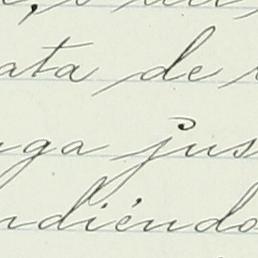 ata de
ga jus
ndiéndo